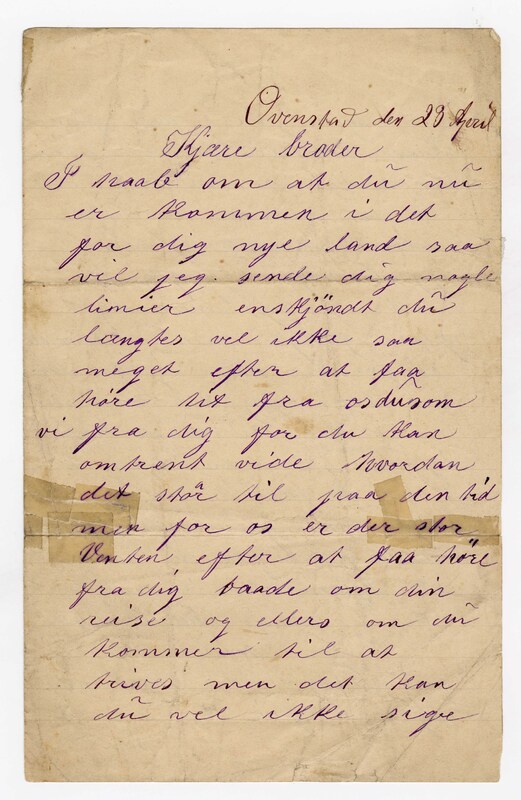 Ovenstad den 23 April
Kjære broder
I haab om at du nu
er kommen i det
for dig nye land saa
vil jeg sende dig nogle
linier enskjöndt du
længtes vel ikke saa
meget efter at faa
höre lit fra os du som
vi fra dig for du kan
omtrent vide hvordan
det stör til paa den tid
men for os er der stor
Venten efter at faa höre
fra dig baade om din
reise og ellers om du
kommer til at
trives men det kan
du vel ikke sige